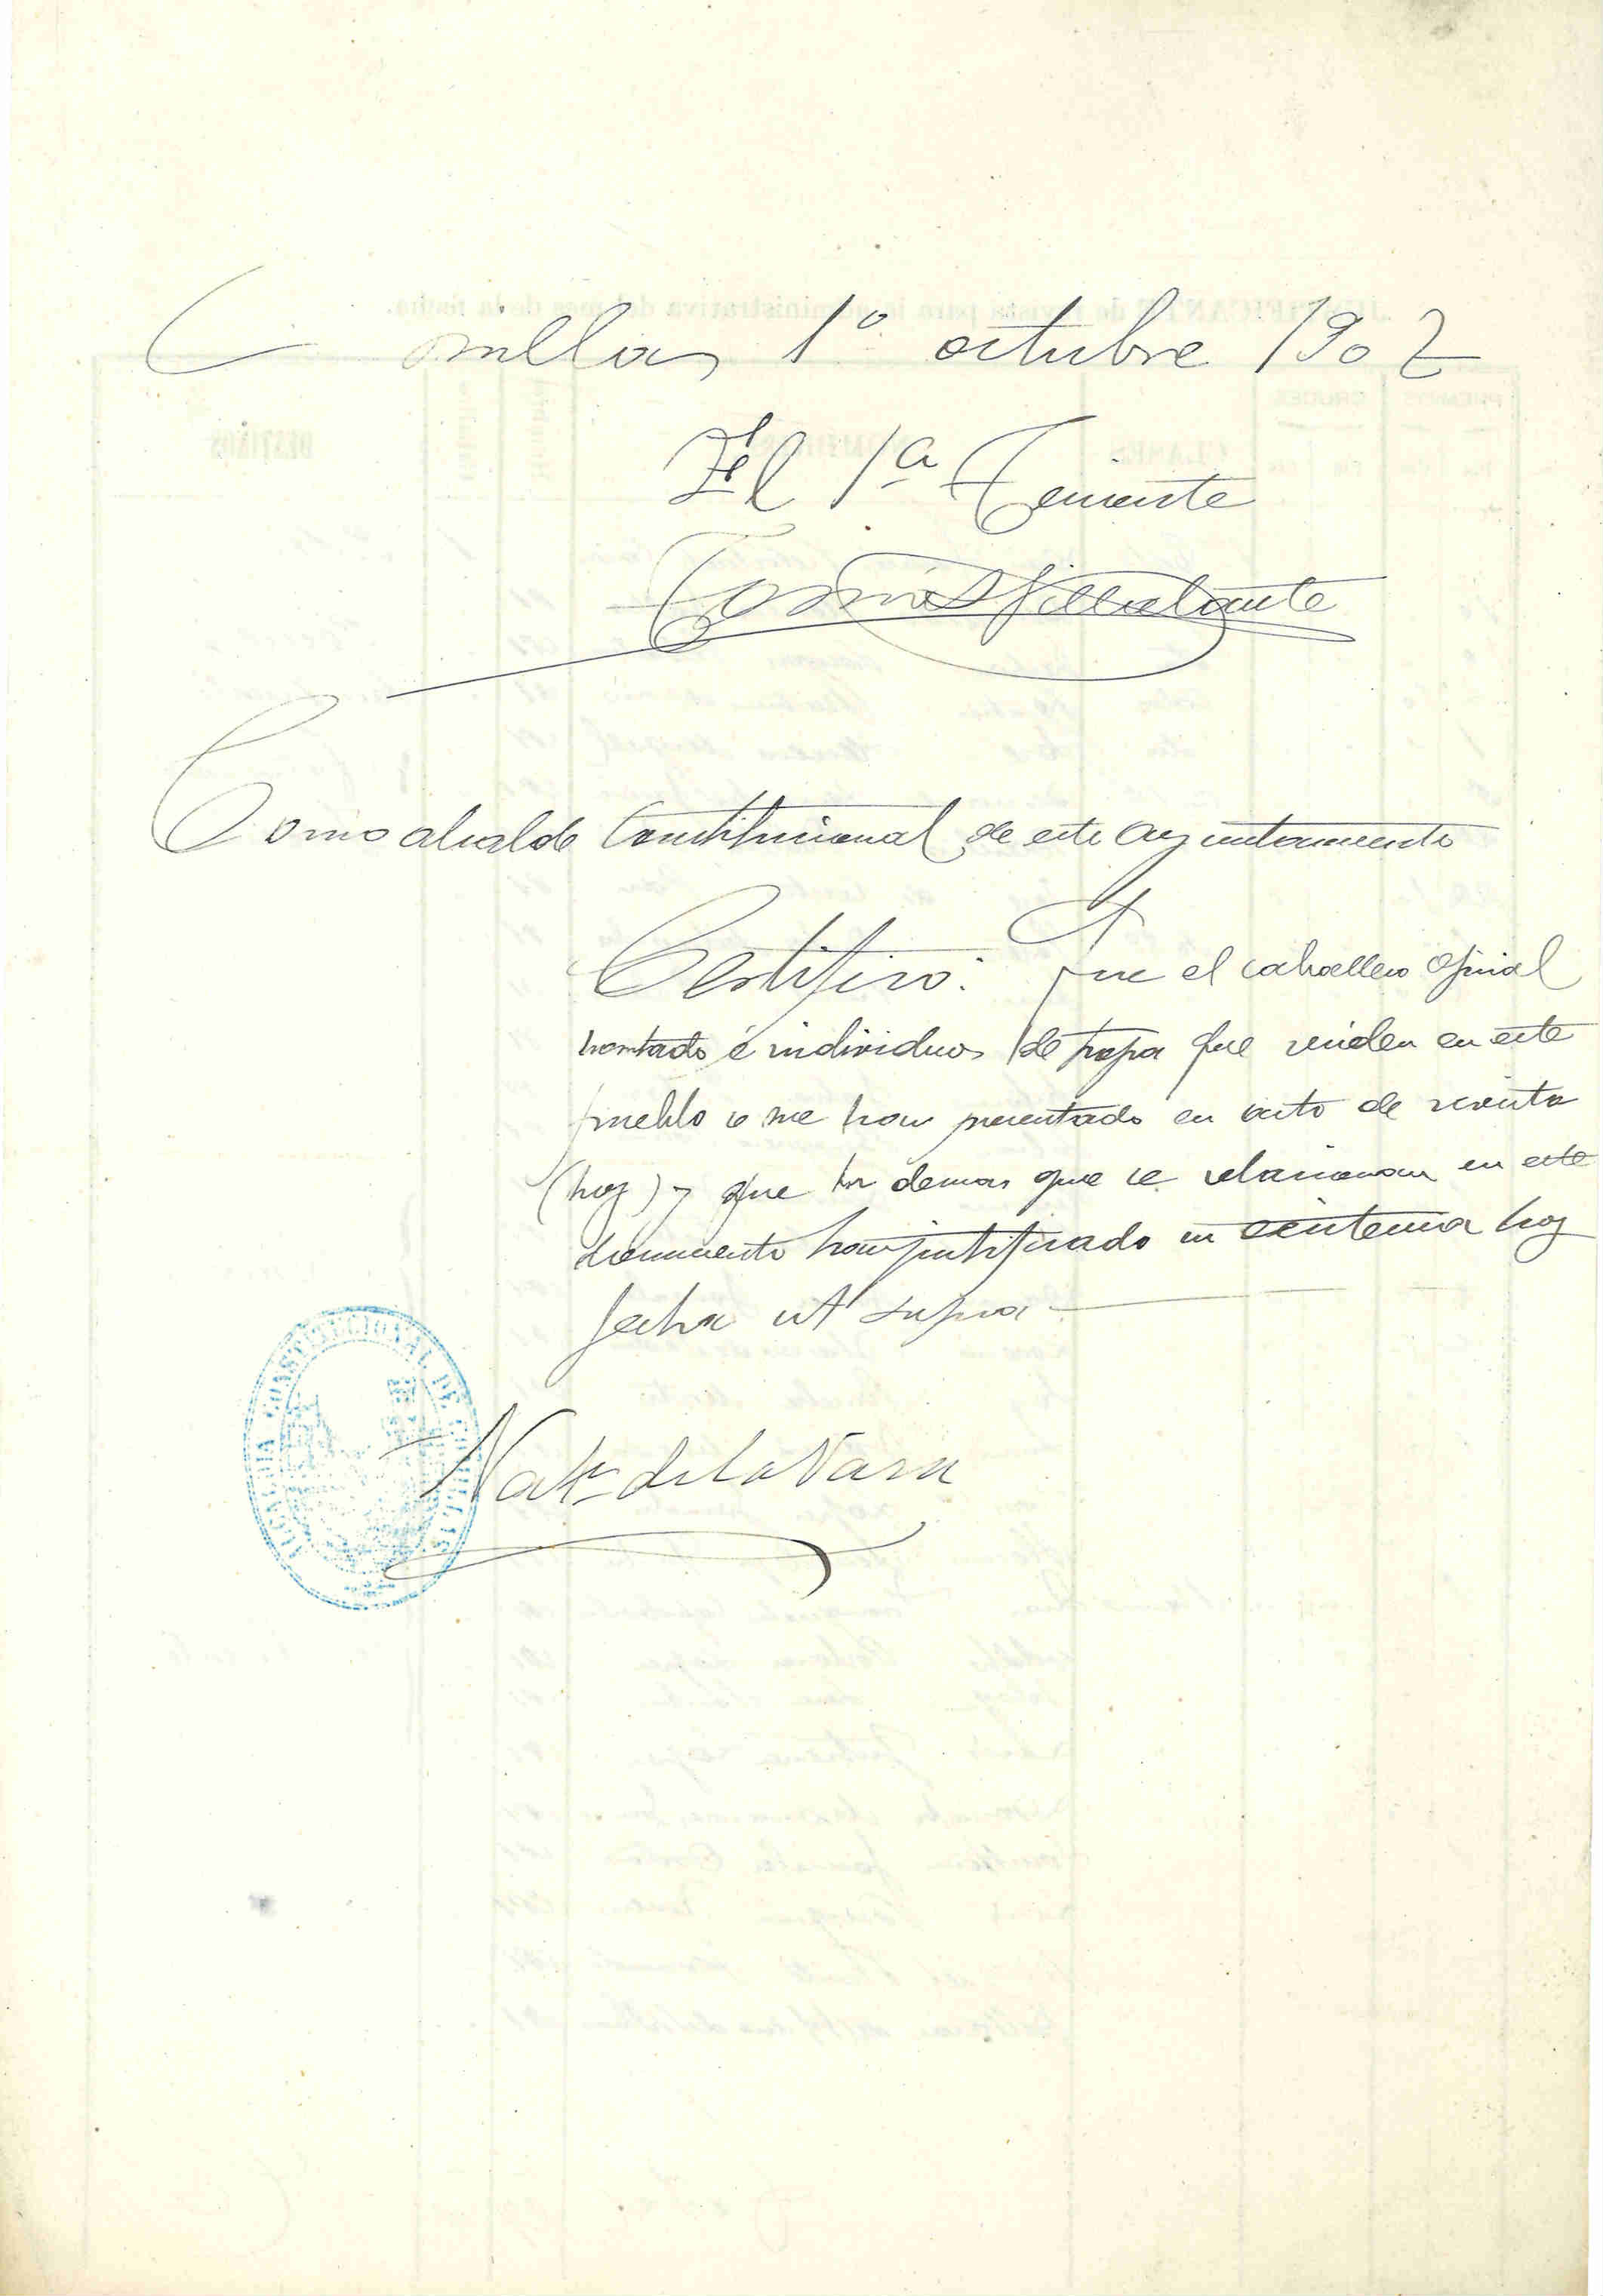 Comillas 1º octubre 1902
El 1er Teniente
Tomás Villatante
Como alcalde Constitucional de este ayuntamiento
Certifico: Que el caballero oficial
montado é individuos de tropa que residen en este
pueblo se me han presentado en acto de revista
(hoy) y que los demas que se relacionan en este
documento han justificado su existencia hoy
fecha ut supra
Natº de la Vara
ALCALDIA CONSTITUCIONAL DE COMILLAS